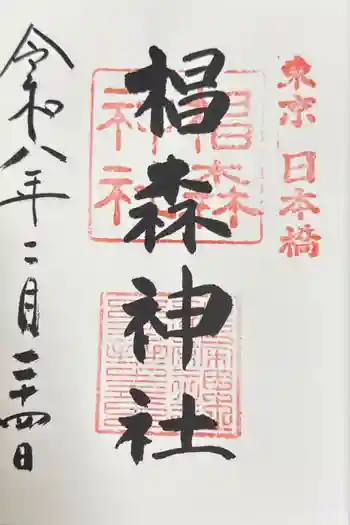 東京 日本橋
椙森神社
椙森
神社
令和八年二月二十四日